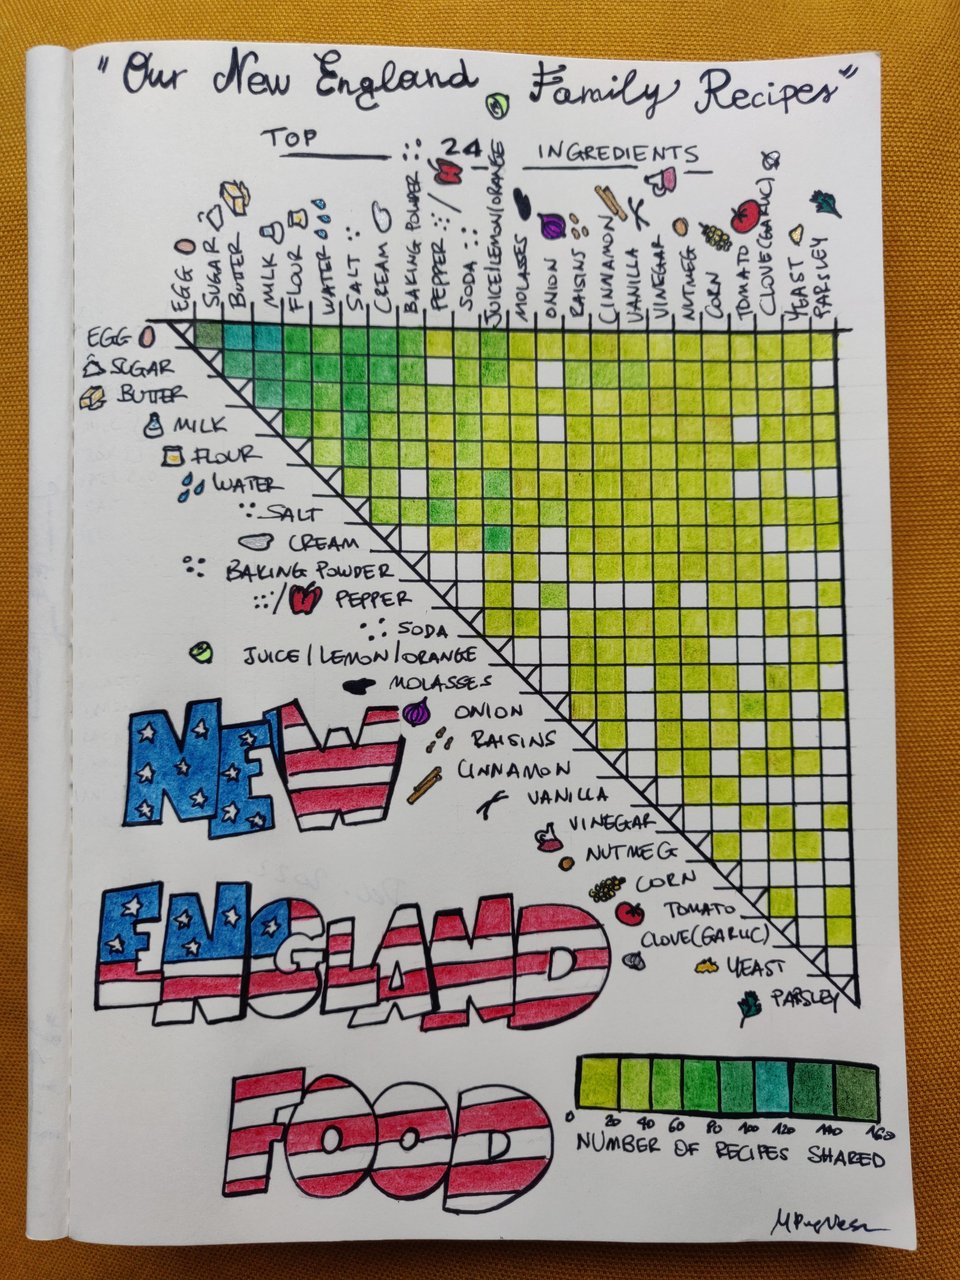 "Our New England Family Recipes"
TOP 24 INGREDIENTS
EGG
SUGAR
BUTTER
MILK
FLOUR
WATER
SALT
CREAM
BAKING POWDER
PEPPER
SODA
JUICE/LEMON/ORANGE
MOLASSES
ONION
RAISINS
CINNAMON
VANILLA
VINEGAR
NUTMEG
CORN
TOMATO
CLOVE(GARLIC)
YEAST
PARSLEY
EGG
SUGAR
BUTTER
MILK
FLOUR
WATER
SALT
CREAM
BAKING POWDER
PEPPER
SODA
JUICE/LEMON/ORANGE
MOLASSES
ONION
RAISINS
CINNAMON
VANILLA
VINEGAR
NUTMEG
CORN
TOMATO
CLOVE(GARLIC)
YEAST
PARSLEY
NEW
ENGLAND
FOOD
0 20 40 60 80 100 120 140 160
NUMBER OF RECIPES SHARED